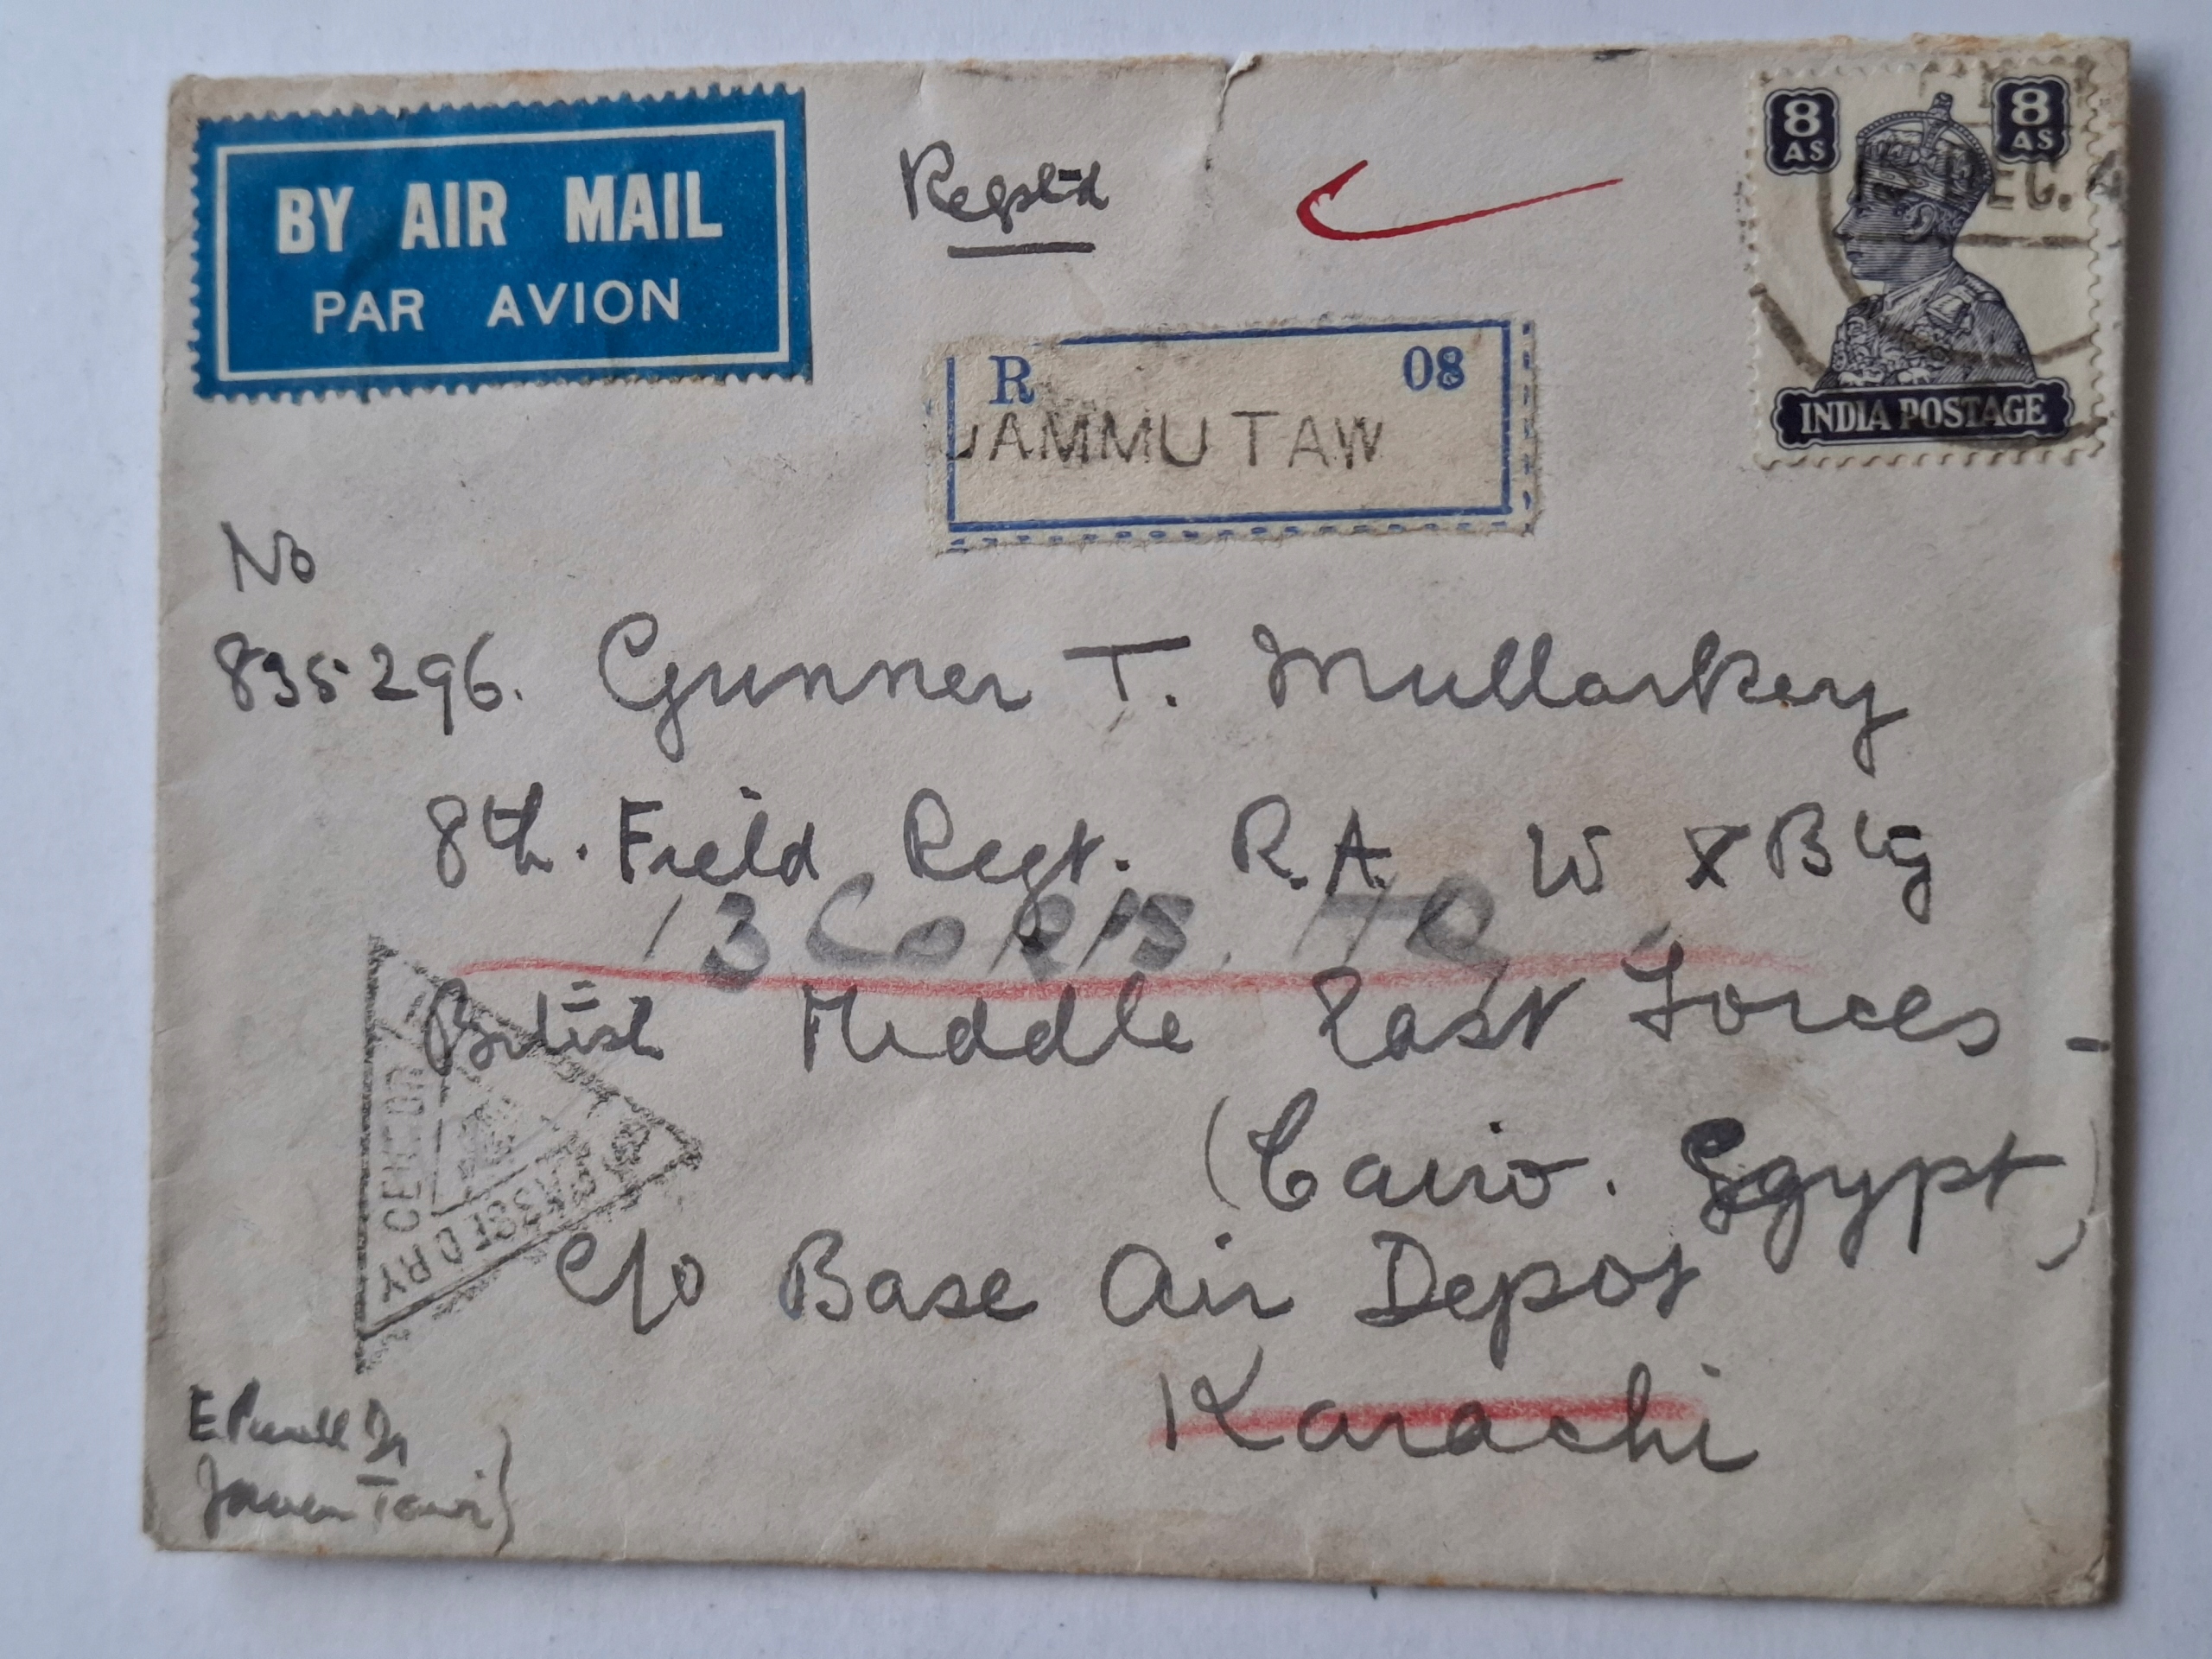 BY AIR MAIL
PAR AVION
Registd
8 AS
8 AS
EG.
INDIA POSTAGE
R 08
JAMMU TAW
No
835296. Gunner T. Mullarkey
8th. Field Regt. R.A. W X Bty
13 CORPS. TR
British Middle East Forces -
(Cairo. Egypt)
c/o Base Air Depot
Karachi
PASSED
CENSOR
RY
E
Tawi)